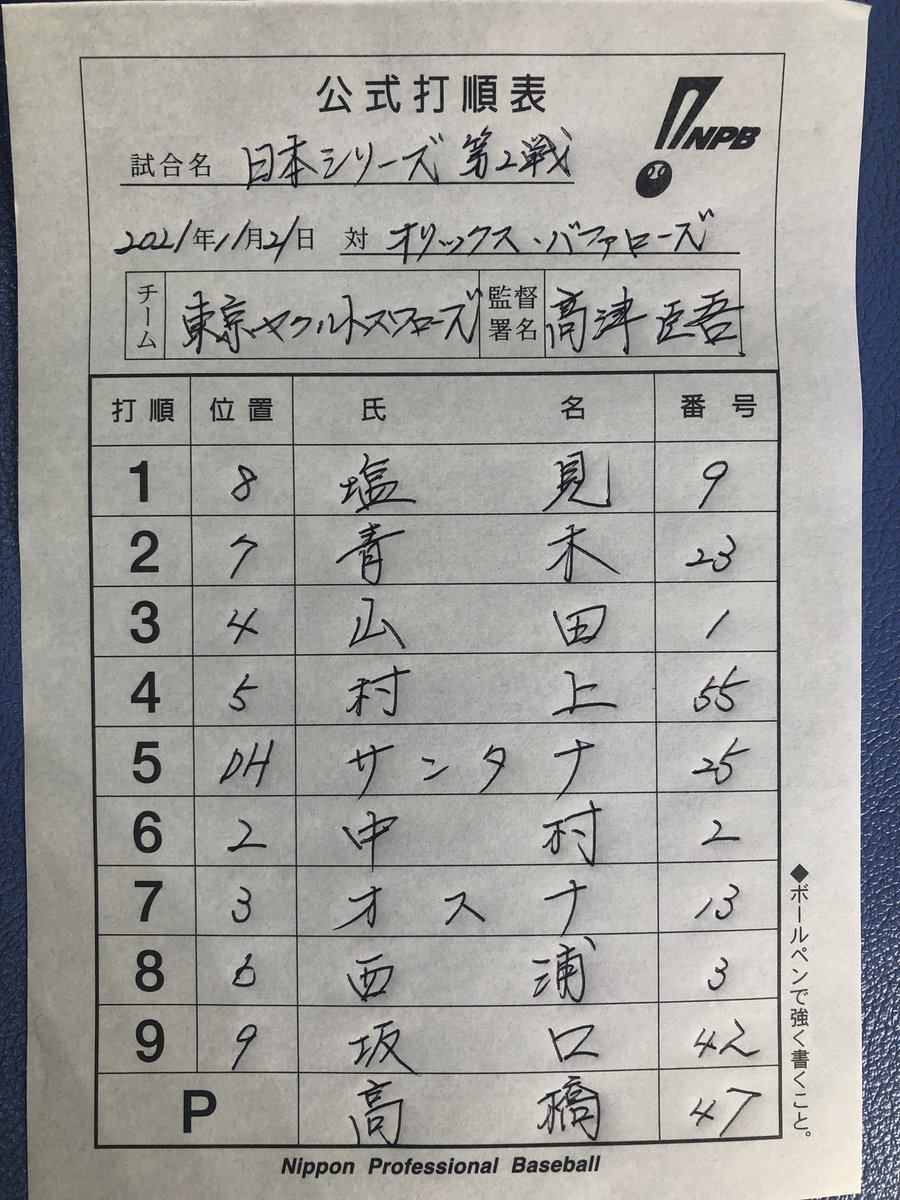 公式打順表
NPB
試合名 日本シリーズ 第2戦
2021年11月21日 対 オリックス・バファローズ
チーム 東京ヤクルトスワローズ 監督署名 高津臣吾
打順 位置 氏名 番号
1 8 塩見 9
2 7 青木 23
3 4 山田 1
4 5 村上 55
5 DH サンタナ 25
6 2 中村 2
7 3 オスナ 13
8 6 西浦 3
9 9 坂口 42
P 高橋 47
◆ボールペンで強く書くこと。
Nippon Professional Baseball